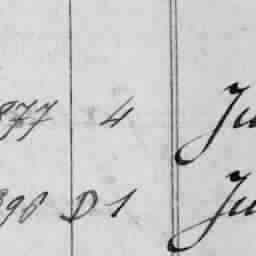 877 4 Ju
898 D 1 Ju